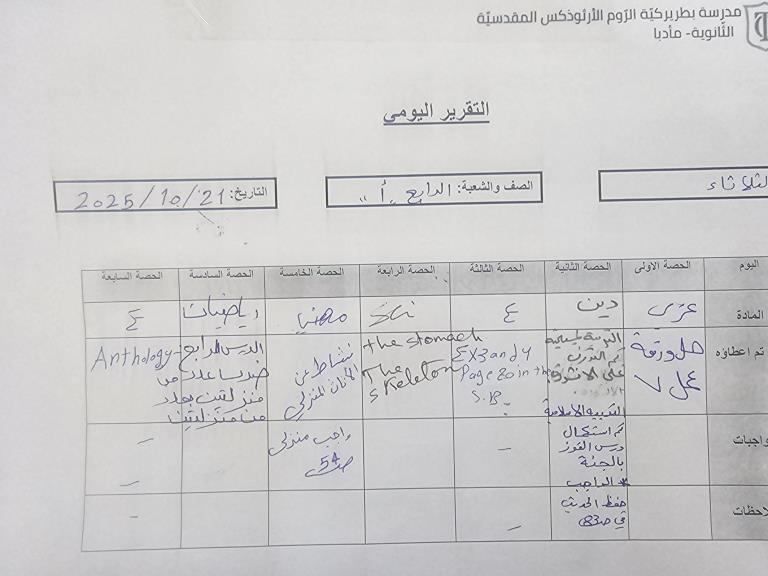 مدرسة بطريركيّة الرّوم الأرثوذكس المقدسيّة
الثّانوية- مأدبا
التقرير اليومي
الثلاثاء
الصف والشعبة: الرابع "أ"
التاريخ: 2025/10/21
اليوم الحصة الاولى الحصة الثانية الحصة الثالثة الحصة الرابعة الحصة الخامسة الحصة السادسة الحصة السابعة
المادة عربي دين E Sci مهني رياضيات E
تم اعطاؤه
حل ورقة
عمل ٧
التربية المسيحية
تم التدرب
على الأنشودة
التربية الاسلامية
Ex3 and 4
Page 20 in the
S.B
the stomach
The
skeleton
نشاط عن
الأثاث المنزلي
الدرس الرابع
ضرب عدد من
منزلتين بعدد
من منزلتين
Anthology
واجبات
تم استكمال
درس الفوز
بالجنة
* الواجب
حفظ الحديث
في ص83
-
واجب منزلي
ص54
-
-
لاحظات
-
-